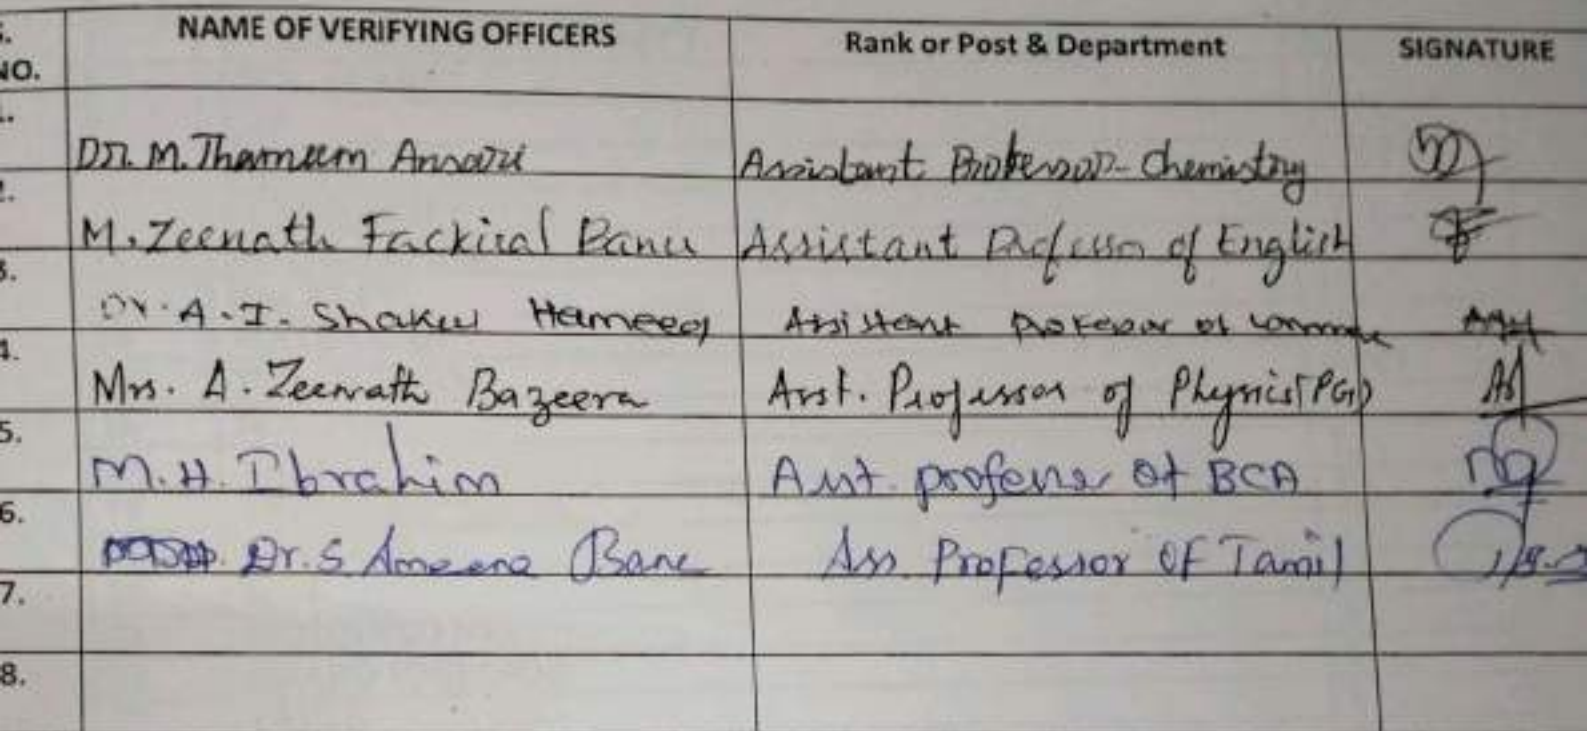 NO. NAME OF VERIFYING OFFICERS Rank or Post & Department SIGNATURE
Dr. M. Thameem Ansari Assistant Professor - Chemistry
M. Zeenath Fackiral Banu Assistant Professor of English
3. Dr. A. I. Shakul Hameed Assistant Professor of Commerce
4. Mrs. A. Zeenath Bazeera Asst. Professor of Physics (PG)
5. M. H. Ibrahim Asst. professor of BCA
6. Dr. S Ameena Banu Ass Professor OF Tamil
7.
8.